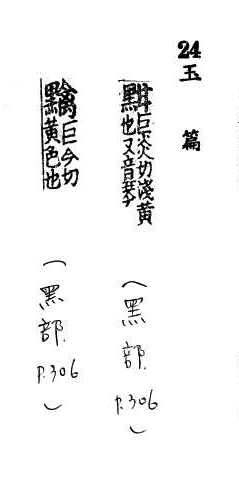 24 玉篇
黚 巨炎切淺黃也又音琴 (黑部 P.306)
巨今切黃色也 (黑部 P.306)